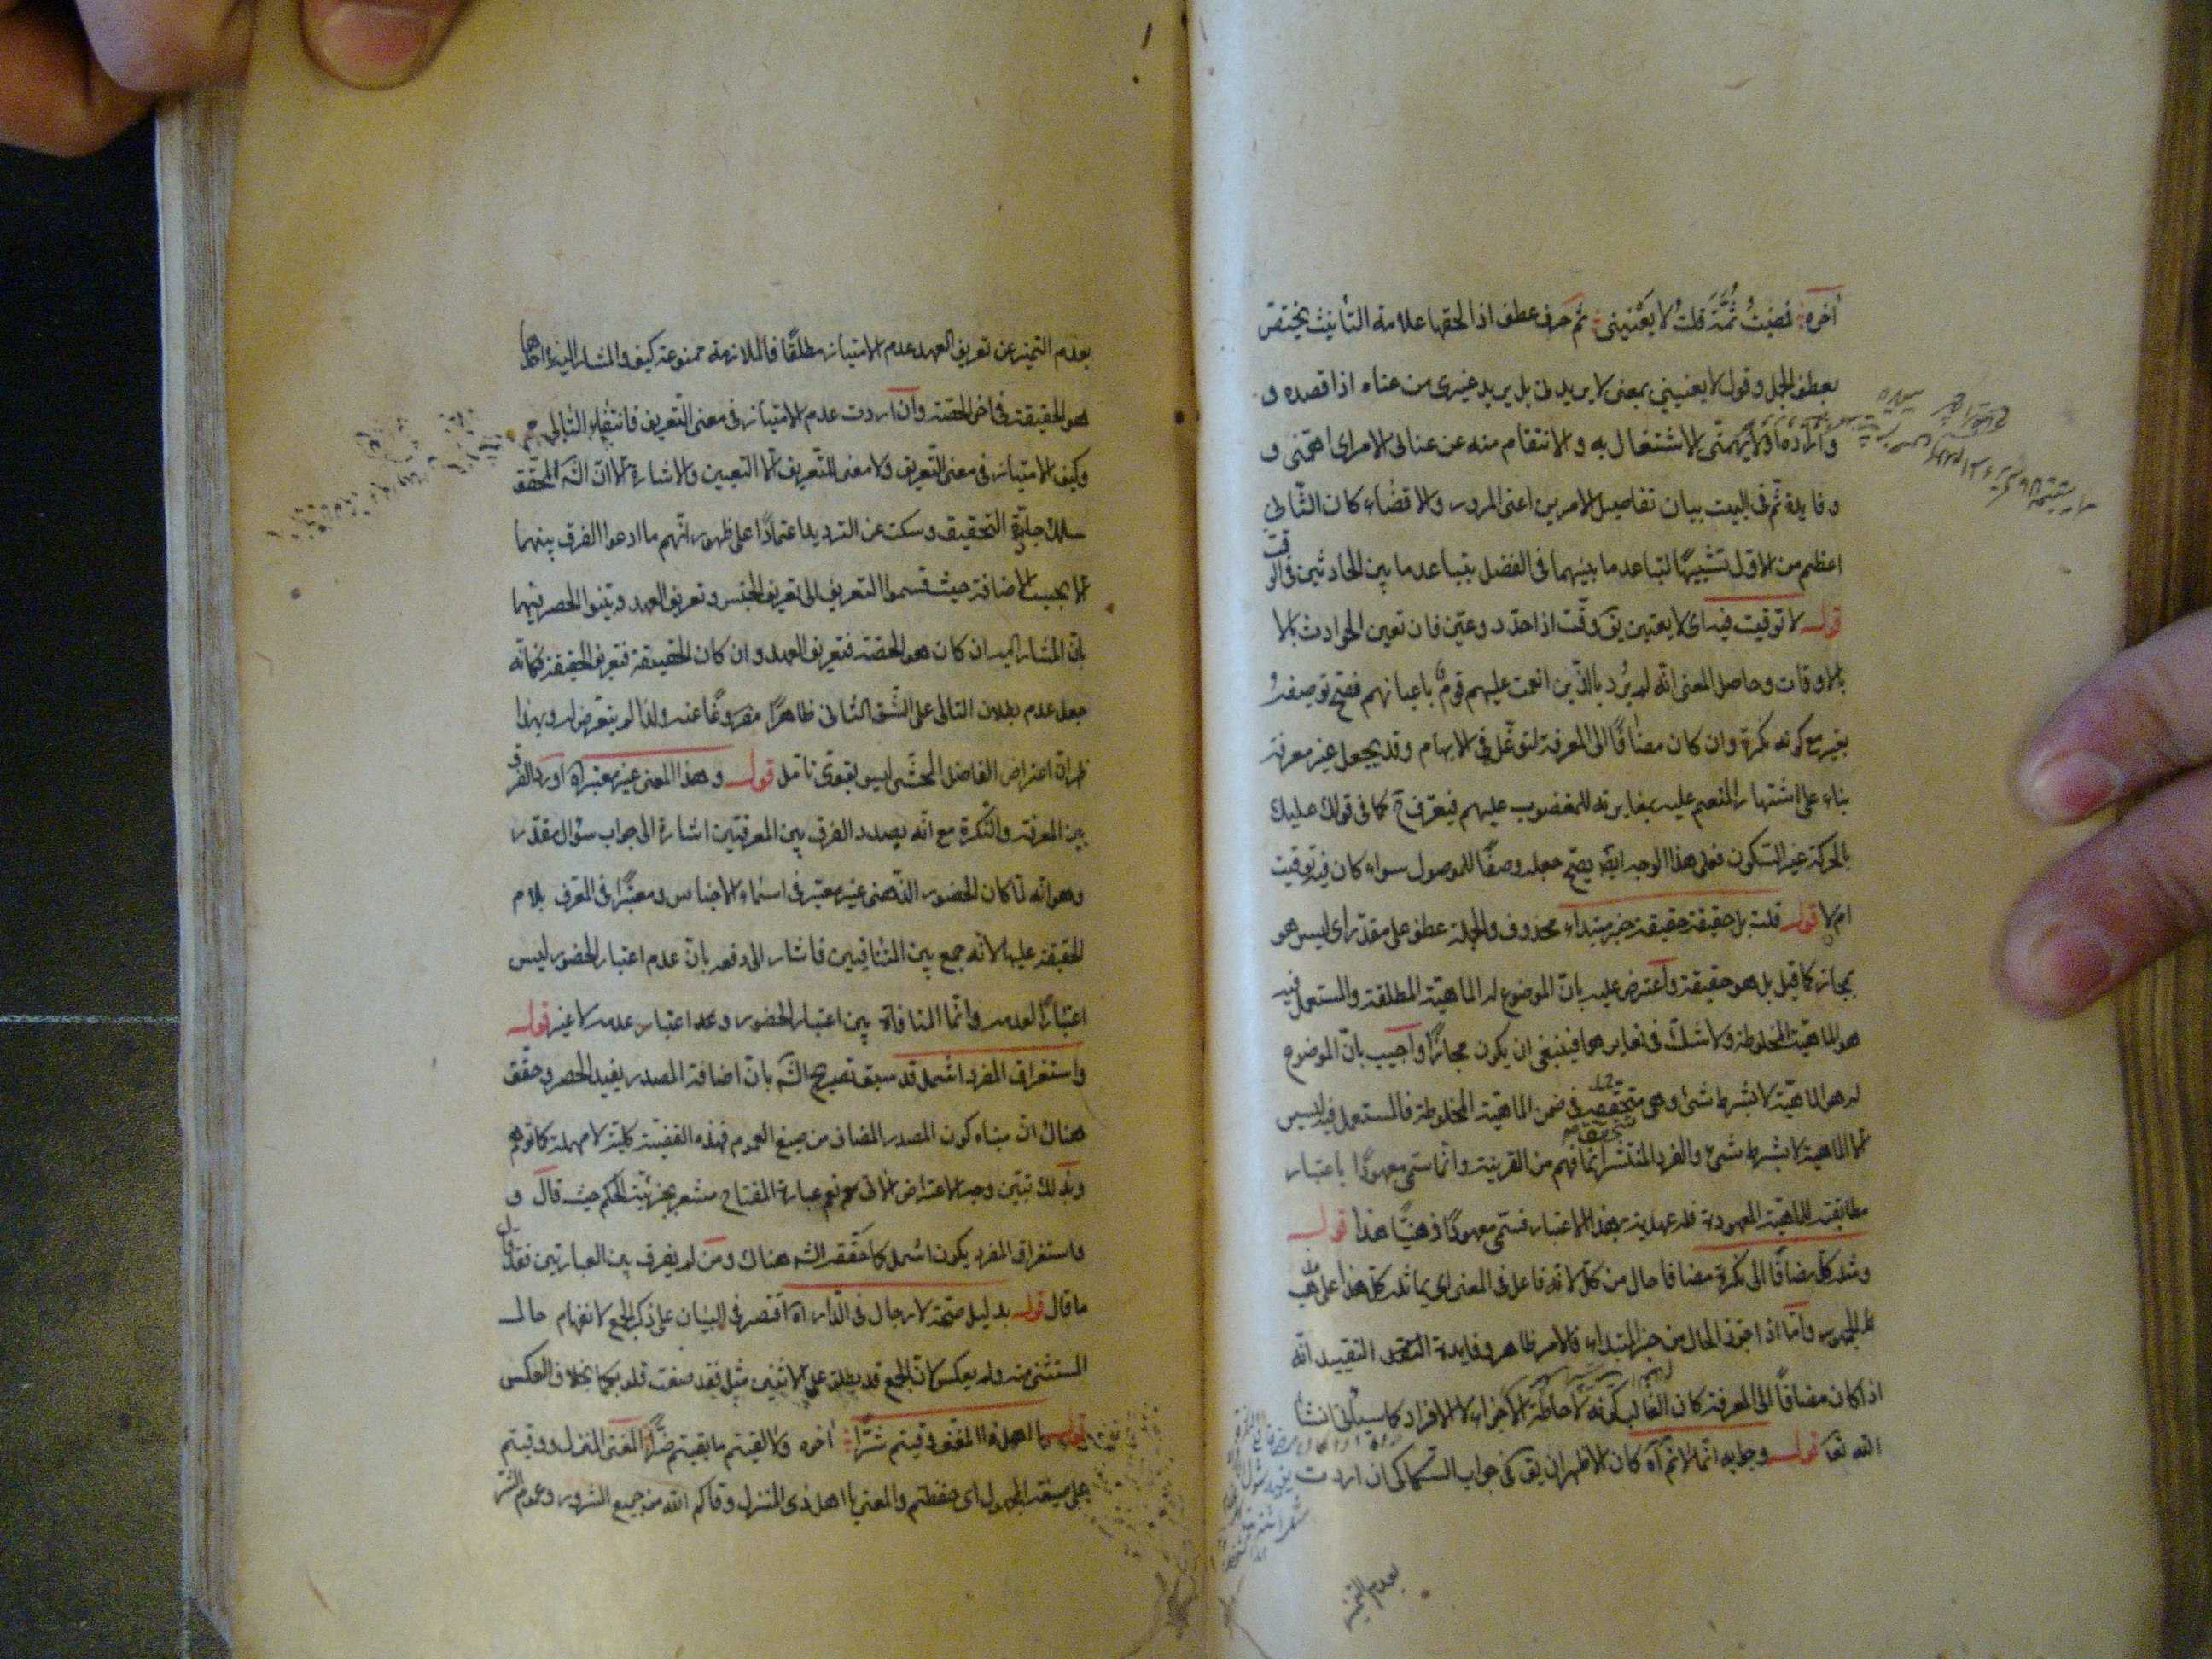 آخره فمضيت ثمة قلت لا يعنيني ثم حرف عطف اذا لحقها علامة التأنيث يختص
بعطف الجمل وقول لا يعنيني بمعنى لا يريدني بل يريد غيرى من عناه اذا قصده و
واراده ولا يهمنى الاشتغال به والانتقام منه عن عنانى الامر اى اهمنى و
وفايدة ثم فى البيت بيان تفاصيل الامرين اعنى المرور والاقضاء كان الثانى
اعظم من الاول تشبيها لتباعد ما بينهما فى الفضل بتباعد ما بين الحادثين فى الوقت
قوله لا توقيت فيه اى لا يعتين يق وقت اذا حدد وعين فان تعين الحوادث بالا
بالاوقات وحاصل المعنى انه لم يرد بالذين انعمت عليهم قوم باعيانهم فصح توصيفه
بغير مع كونه نكرة وان كان مضافا الى المعرفة لتوغل فى الابهام وقد يجعل غير معرفة
بناء على اشتهار المنعم عليه بمغايرته للمغضوب عليهم فيتعرف ح كما فى قولك عليك
بالحركة غير السكون فعلى هذا الوجه ايضا يصح جعله وصفا للموصول سواء كان فيه توقيت
ام لا قوله قلت بل حقيقة حقيقة خبر مبتداء محذوف والجملة عطف على مقدر اى ليس هو
بمجاز كما قيل بل هو حقيقة واعترض عليه بان الموضوع له الماهية المطلقة والمستعمل فيه
هو الماهية المخلوطة ولا شك فى تغايرهما فينبغى ان يكون مجازا واجيب بان الموضوع
له هو الماهية لا بشرط شئ وهى متحققة فى ضمن الماهية المخلوطة فالمستعمل فيه ليس
الا الماهية لا بشرط شئ والفرد المنتشر انما فهم من القرينة وانما سمى معهودا باعتبار
مطابقته للماهية المعهودة فله عهدية بهذا الاعتبار فسمى معهودا ذهنيا هذا قوله
ومثله كل مضافا الى نكرة مضافا حال من كل لانه فاعل فى المعنى اى يماثله كل هذا على
الجمهور واما اذا جوز الحال من خبر المبتداء فالامر ظاهر وفايدة التقييد انه
اذا كان مضافا الى المعرفة كان الغالب كونه لاحاطة الاجزاء لا الافراد كما سيأتى انشأ
الله تعا قوله وجوابه انا لا نم آه كان الاظهر ان يق فى جواب السكاكى ان اردت
بعدم التميز
بعدم التميز عن تعريف العهد عدم الامتياز مطلقا فالملازمة ممنوعة كيف والمشار اليه فى احدهما
هو الحقيقة وفى اخر الحصة وان اردت عدم الامتياز فى معنى التعريف فانتفاء التالى مم
وكيف الامتياز فى معنى التعريف ولا معنى للتعريف الا التعيين والاشارة الا ان الشه المحقق
سلك جادة التحقيق وسكت عن الترديد اعتمادا على ظهور انهم ما ادعوا الفرق بينهما
الا بحسب الاضافة حيث قسموا التعريف الى تعريف الجنس وتعريف العهد وبينوا الحصر فيهما
بان المشار اليه ان كان هو الحصة فتعريف العهد وان كان الحقيقة فتعريف الحقيقة فكانه
جعل عدم بطلان التالى على الشق الثانى ظاهرا مفروغا عنه ولذا لم يتعرض له وبهذا
ظهر ان اعتراض الفاضل المحشى ليس بقوى تامل قوله وهذا المعنى غير معتبر آه اورد الفرق
بين المعرفة والنكرة مع انه بصدد الفرق بين المعرفتين اشارة الى جواب سؤال مقدر
وهو انه لما كان الحضور الذهنى غير معتبر فى اسماء الاجناس ومعتبرا فى المعرف بلام
الحقيقة عليها لانه جمع بين المتنافيين فاشار الى دفعه بان عدم اعتبار الحضور ليس
اعتبارا لعدمه وانما المنافاة بين اعتبار الحضور وعد اعتبار عدمه لا غير قوله
واستغراق المفرد اشمل قد سبق تصريح الشه بان اضافة المصدر يفيد الحصر وحقق
هناك ان مبناه كون المصدر المضاف من صيغ العموم فهذه القضية كلية لا مهملة كما توهم
وبذلك تبين وجه الاعتراض الاتى نعم عبارة المفتاح مشعر بجزئية الحكم حيث قال و
واستغراق المفرد يكون اشمل كما حققه الشه هناك ومن لم يفرق بين العبارتين فقد قال
ما قال قوله بدليل صحة لا رجال فى الدار آه اقتصر فى البيان على ذكر الجمع لانفهام حال
المستثنى منه ولم يعكس لان الجمع قد يطلق على الاثنين مثل فقد صغت قلوبكما بخلاف العكس
قوله اهل ذا المغنى وقيتم شرا آخره ولا لقيتم ما بقيتم ضرا المغنى المنزل ووقيتم
على صيغة المجهول اى حفظتم والمعنى يا اهل ذى المنزل وقاكم الله من جميع الشرور وعموم الشر